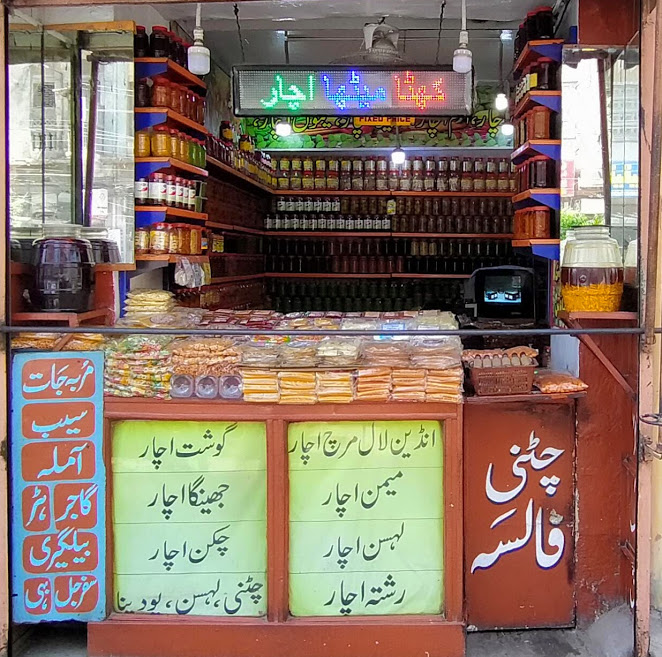 کھٹا میٹھا اچار
FIXED PRICE
مربہ جات
سیب
آملہ
گاجر ہڑ
بیلگیری
سفرجل بہی
گوشت اچار
جھینگا اچار
چکن اچار
چٹنی، لہسن، پودینا
انڈین لال مرچ اچار
میمن اچار
لہسن اچار
رشتہ اچار
چٹنی
فالسہ